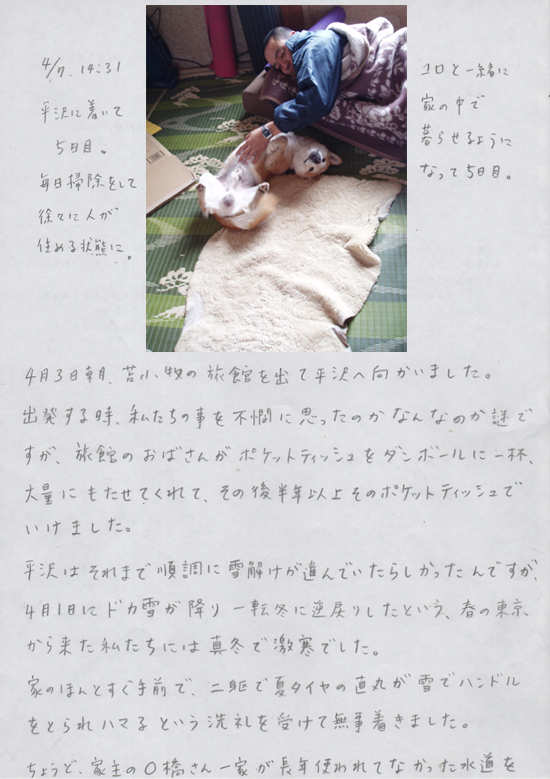 4/7. 14:31
平沢に着いて
5日目。
毎日掃除をして
徐々に人が
住める状態に。
コロと一緒に
家の中で
暮らせるように
なって5日目。
4月3日朝、苫小牧の旅館を出て平沢へ向かいました。
出発する時、私たちの事を不憫に思ったのかなんなのか謎で
すが、旅館のおばさんがポケットティッシュをダンボールに一杯、
大量にもたせてくれて、その後半年以上そのポケットティッシュで
いけました。
平沢はそれまで順調に雪解けが進んでいたらしかったんですが、
4月1日にドカ雪が降り一転冬に逆戻りしたという、春の東京
から来た私たちには真冬で激寒でした。
家のほんとすぐ手前で、二駆で夏タイヤの直丸が雪でハンドル
をとられハマるという洗礼を受けて無事着きました。
ちょうど、家主の〇橋さん一家が長年使われてなかった水道を